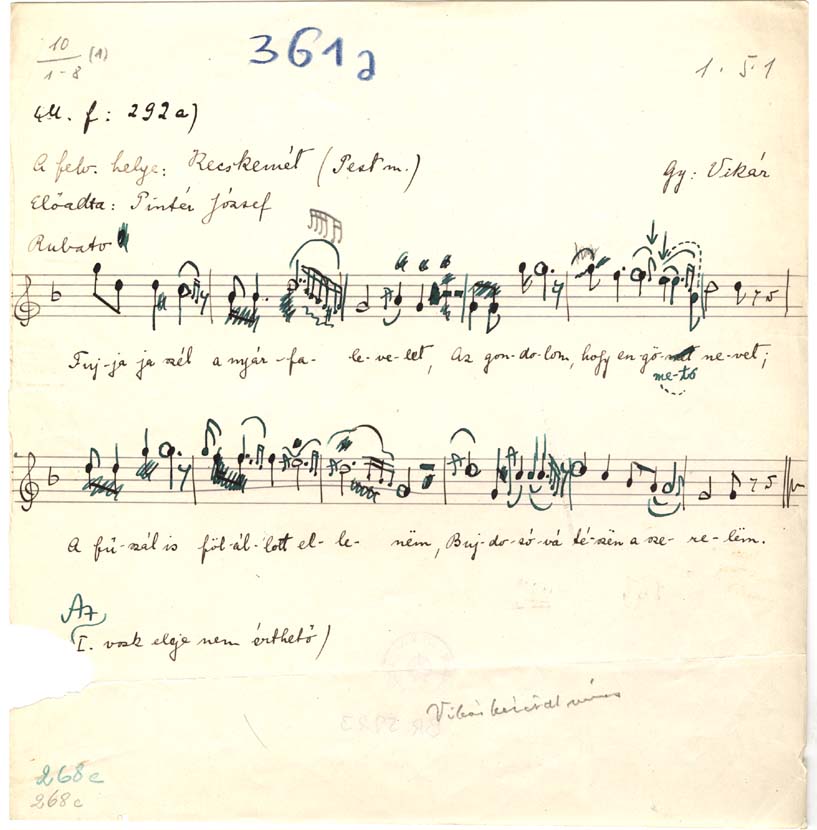 10
1-8 (1)
361a
1. 5. 1
M. f: 292a)
A felv. helye: Kecskemét (Pest m.)
Gy: Vikár
Előadta: Pintér József
Rubato
Fuj-ja ja szél a nyár-fa- le-ve-let, Az gon-do-lom, hogy en-gö- ne-vet;
me-tö
A fű-szál is föl-ál-lott el-le- nëm, Buj-do-só-vá të-szën a sze-re-lëm.
Az
I. vszk eleje nem érthető)
268c
268c